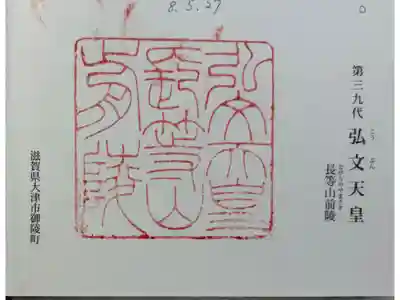 8.5.27
第三九代 弘文天皇
こう ぶん
長等山前陵
ながらのやまさき
弘文天皇
長等山
前陵
滋賀県大津市御陵町